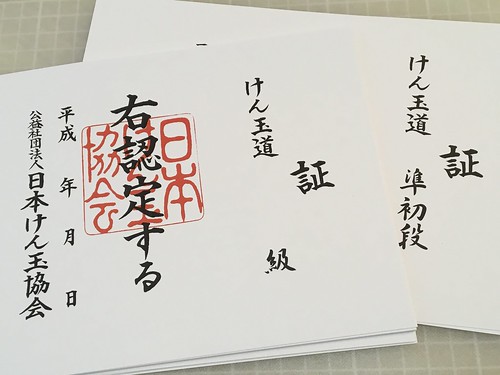 証
けん玉道
級
右認定する
平成 年 月 日
公益社団法人 日本けん玉協会
日本
けん玉
協会
証
けん玉道
準初段